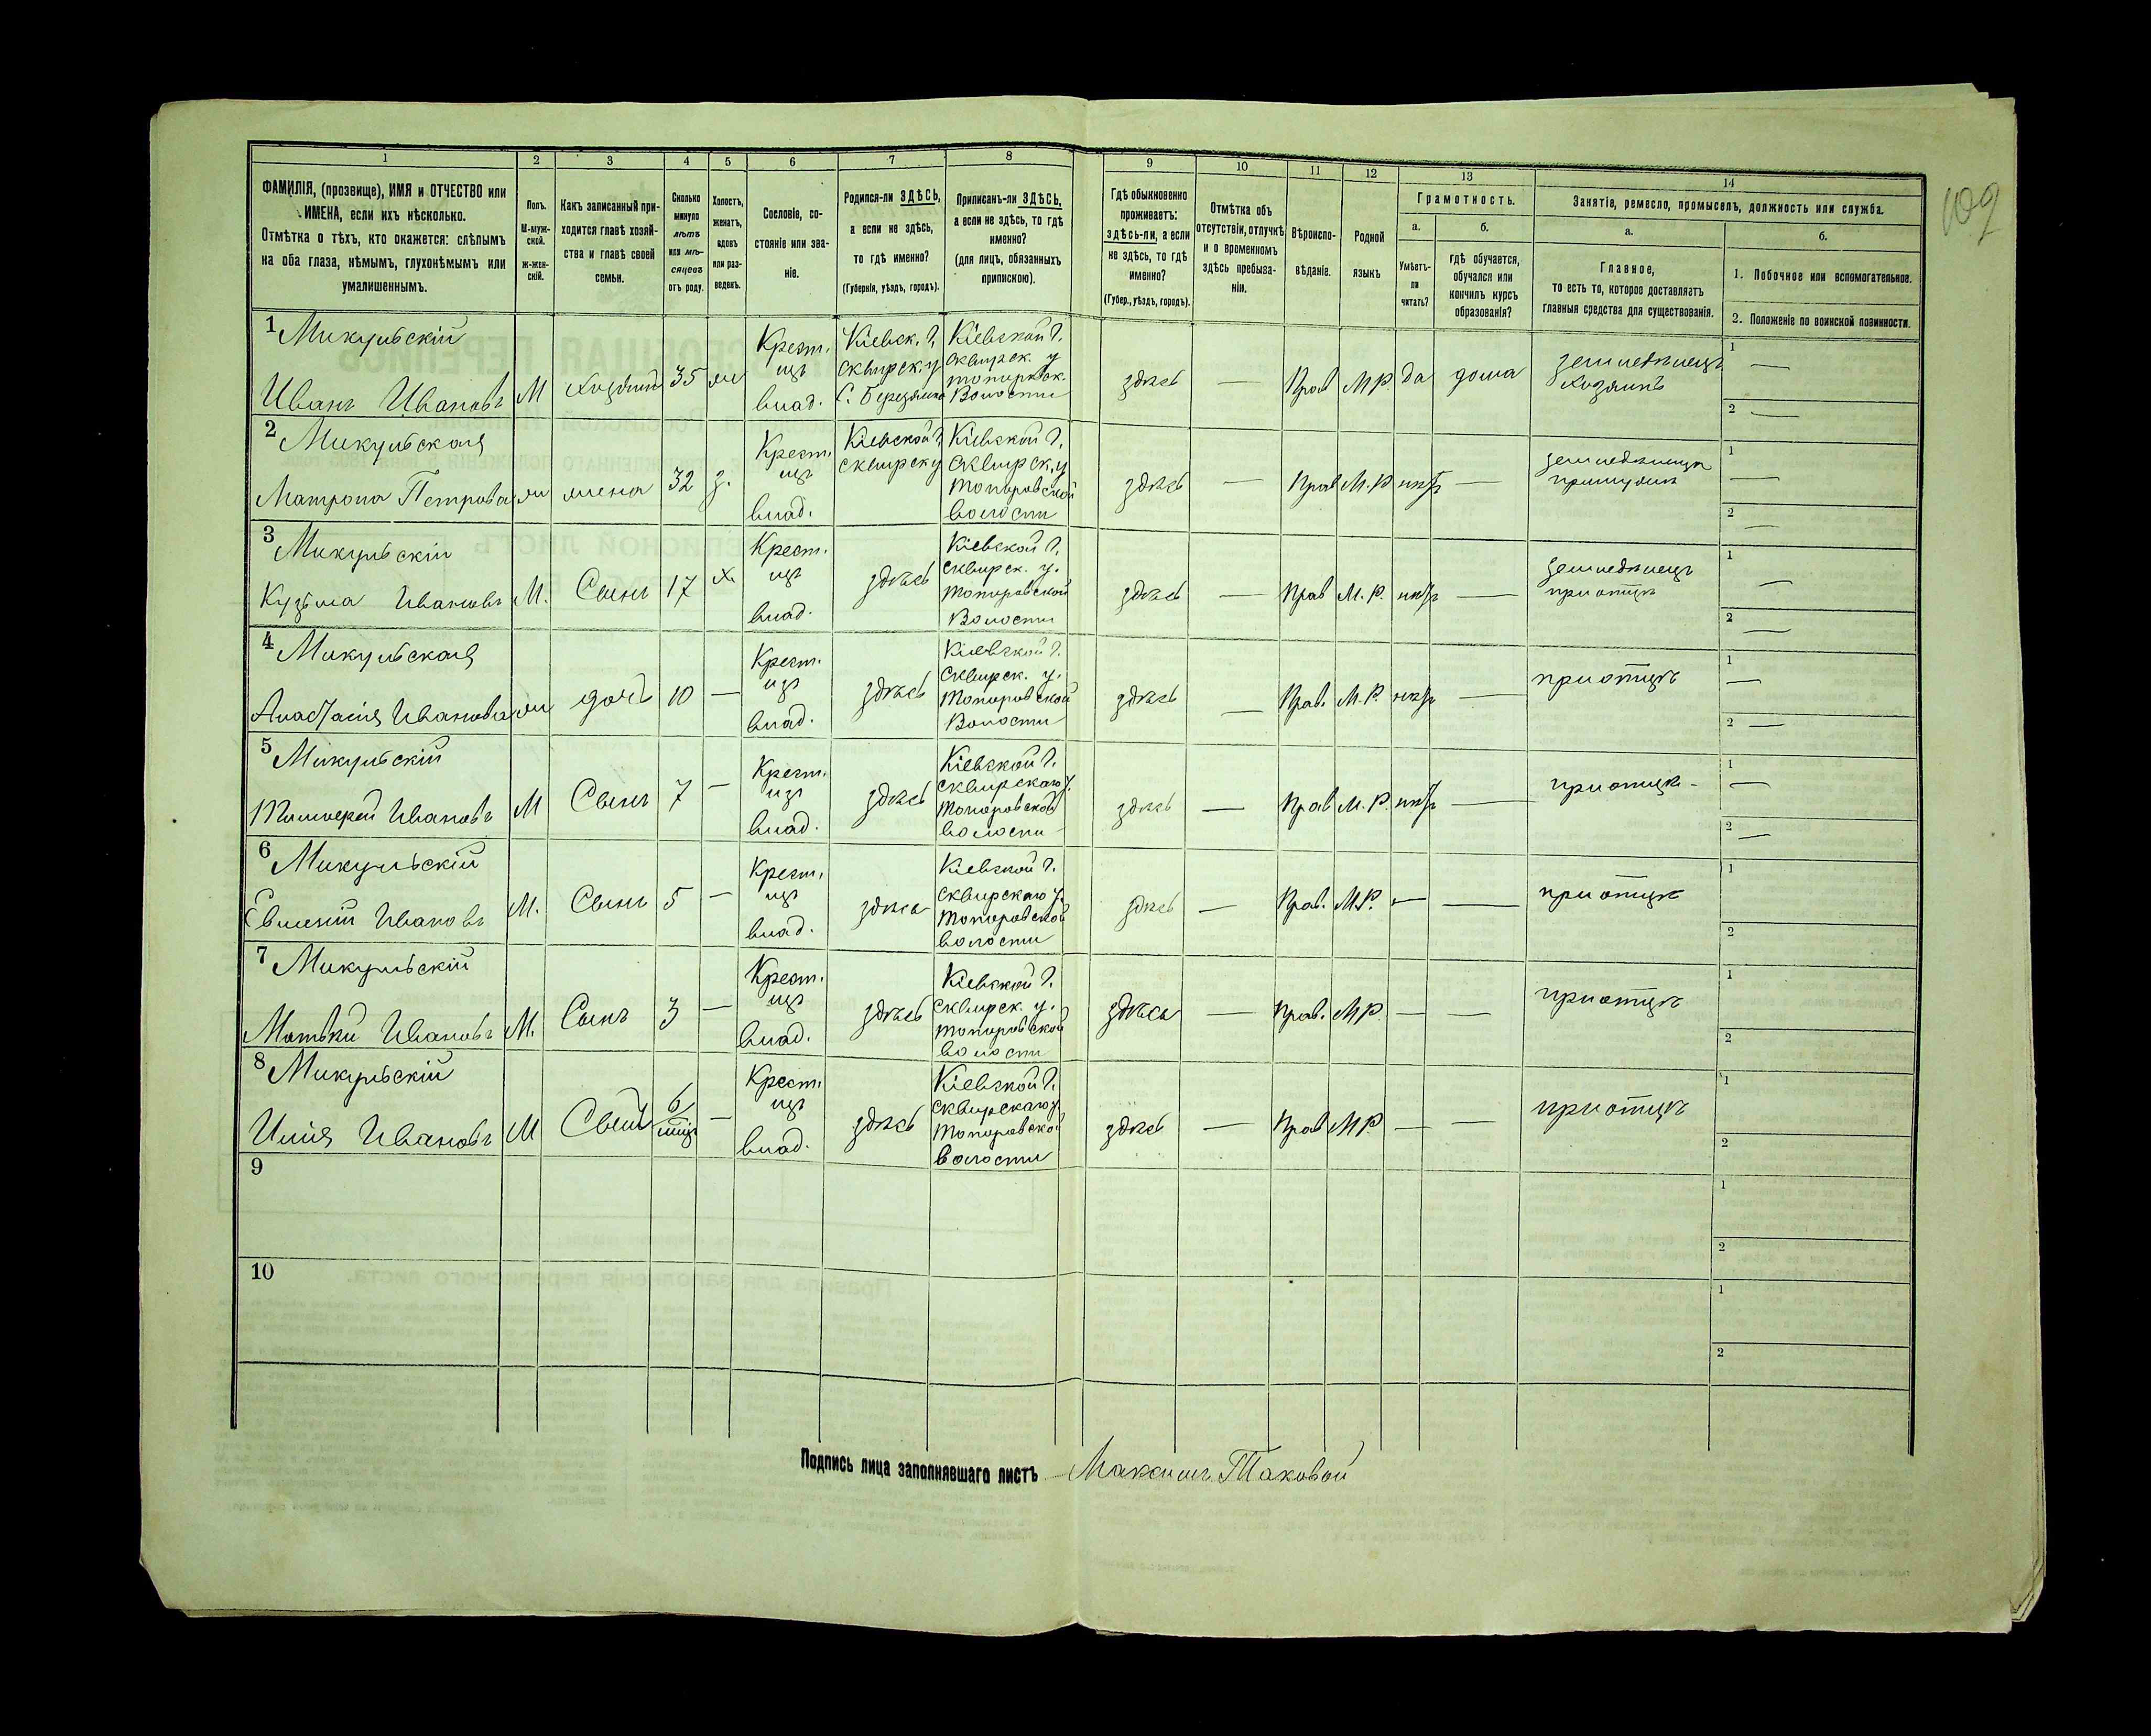 1 2 3 4 5 6 7 8 9 10 11 12 13 14
ФАМИЛІЯ, (прозвище), ИМЯ и ОТЧЕСТВО или
ИМЕНА, если ихъ нѣсколько.
Отмѣтка о тѣхъ, кто окажется: слѣпымъ
на оба глаза, нѣмымъ, глухонѣмымъ или
умалишеннымъ.
Полъ.
М-муж-
ской.
ж-жен-
скій.
Какъ записанный при-
ходится главѣ хозяй-
ства и главѣ своей
семьи.
Сколько
минуло
лѣтъ
или мѣ-
сяцевъ
отъ роду.
Холостъ,
женатъ,
вдовъ
или раз-
веденъ.
Сословіе, со-
стояніе или зва-
ніе.
Родился-ли ЗДѢСЬ,
а если не здѣсь,
то гдѣ именно?
(Губернія, уѣздъ, городъ).
Приписанъ-ли ЗДѢСЬ,
а если не здѣсь, то гдѣ
именно?
(для лицъ, обязанныхъ
припискою).
Гдѣ обыкновенно
проживаетъ:
здѣсь-ли, а если
не здѣсь, то гдѣ
именно?
(Губер., уѣздъ, городъ).
Отмѣтка объ
отсутствіи, отлучкѣ
и о временномъ
здѣсь пребыва-
ніи.
Вѣроиспо-
вѣданіе.
Родной
языкъ
Грамотность.
а.
Умѣетъ-
ли
читать?
б.
гдѣ обучается,
обучался или
кончилъ курсъ
образованія?
Занятіе, ремесло, промыселъ, должность или служба.
а.
Главное,
то есть то, которое доставляетъ
главныя средства для существованія.
б.
1. Побочное или вспомогательное.
2. Положеніе по воинской повинности.
109
1 Микульскій
Иванъ Ивановъ М хозяинъ 35 ж
Крест.
изъ
влад.
Кіевск. г.
Сквирск. у
С.
Кіевской г.
Сквирск. у
Топоровск.
Волости
здѣсь — Прав М Р. да дома
земледѣлецъ
хозяинъ
1 —
2 —
2 Микульская
Матрона Петрова ж жена 32 з.
Крест.
изъ
влад.
Кіевской г.
Сквирск у
Кіевской г.
Сквирск. у
Топоровской
волости
здѣсь — Прав М. Р нѣтъ —
земледѣлица
при мужѣ
1 —
2 —
3 Микульскій
Кузьма Ивановъ М. Сынъ 17 х.
Крест.
изъ
влад.
здѣсь
Кіевской г.
Сквирск. у.
Топоровской
Волости
здѣсь — Прав М. Р. нѣтъ —
земледѣлецъ
при отцѣ
1 —
2 —
4 Микульская
Анастасія Иванова ж дочь 10 —
Крест.
изъ
влад.
здѣсь
Кіевской г.
Сквирск. у.
Топоровской
Волости
здѣсь — Прав. М. Р. нѣтъ —
при отцѣ
1 —
2 —
5 Микульскій
Тимофей Ивановъ М Сынъ 7 —
Крест.
изъ
влад.
здѣсь
Кіевской г.
Сквирскаго у.
Топоровской
волости
здѣсь — Прав М. Р. нѣтъ —
при отцѣ -
1 —
2 —
6 Микульскій
Ивановъ М. Сынъ 5 —
Крест.
изъ
влад.
здѣсь
Кіевской г.
Сквирскаго у.
Топоровской
волости
здѣсь — Прав. М.Р. — —
при отцѣ
1
2
7 Микульскій
Ивановъ М. Сынъ 3 —
Крест.
изъ
влад.
здѣсь
Кіевской г.
Сквирск. у.
Топоровской
волости
здѣсь — Прав. М Р. — —
при отцѣ
1
2
8 Микульскій
Илія Ивановъ М Сынъ 6 —
Крест.
изъ
влад.
здѣсь
Кіевской г.
Сквирскаго у
Топоровской
волости
здѣсь — Прав М Р. — —
при отцѣ
1
2
9
1
2
10
1
2
Подпись лица заполнявшаго листъ Максимъ Таковой